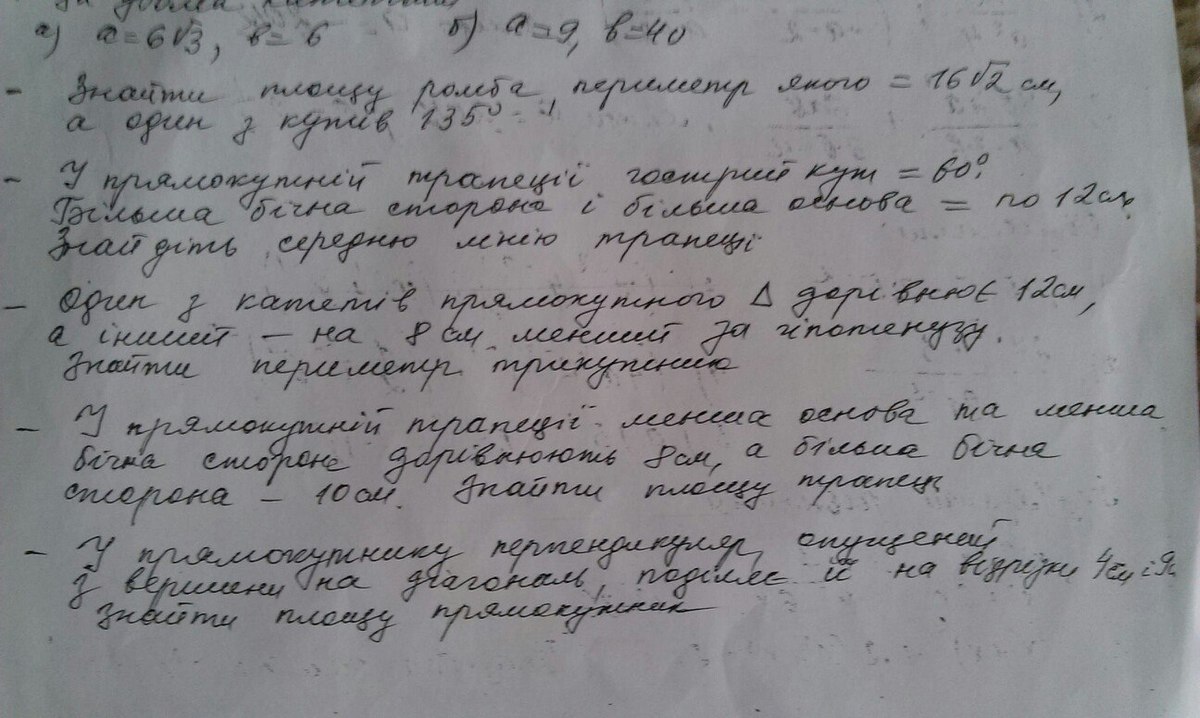 за двома катетами
а) a = 6√3, b = 6 б) a = 9, b = 40
- Знайти площу ромба, периметр якого = 16√2 см,
а один з кутів 135°
- У прямокутній трапеції гострий кут = 60°.
Більша бічна сторона і більша основа = по 12 см.
Знайдіть середню лінію трапеції
- Один з катетів прямокутного Δ дорівнює 12 см,
а інший – на 8 см менший за гіпотенузу.
Знайти периметр трикутника
- У прямокутній трапеції менша основа та менша
бічна сторона дорівнюють 8 см, а більша бічна
сторона – 10 см. Знайти площу трапеції
- У прямокутнику перпендикуляр, опущений
з вершини на діагональ, поділяє її на відрізки 4 см і 9
Знайти площу прямокутник